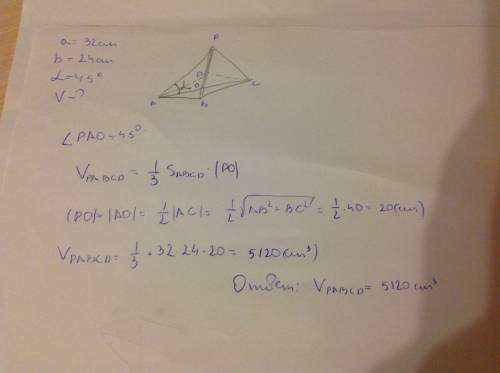 a = 32cm
b = 24cm
α = 45°
V - ?
P
D
O
α
A
B
C
∠PAO = 45°
V_PABCD = 1/3 S_ABCD · |PO|
|PO| = |AO| = 1/2 |AC| = 1/2 √AB² + BC² = 1/2 · 40 = 20 (cm)
V_PABCD = 1/3 · 32 · 24 · 20 = 5120 (cm³)
Ответ: V_PABCD = 5120 cm³